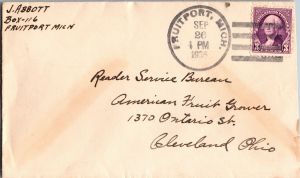 J. ABBOTT
BOX-116
FRUITPORT MICH
FRUITPORT, MICH.
SEP
26
1 PM
Reader Service Bureau
American Fruit Grower
1370 Ontario St.
Cleveland Ohio